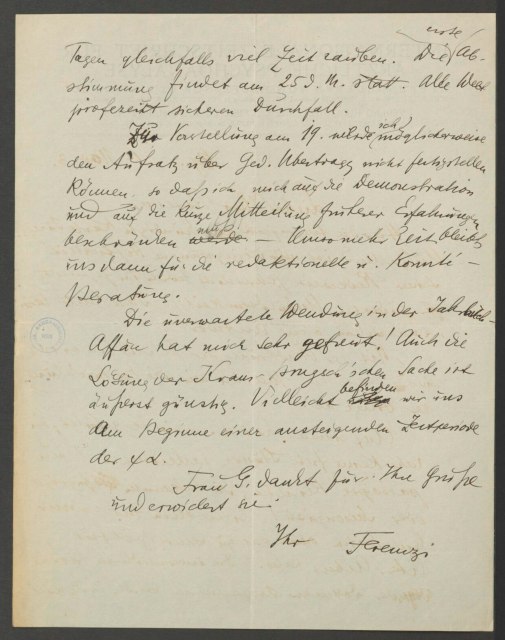 erste
Tagen gleichfalls viel Zeit rauben. Die Ab-
stimmung findet am 25 d. M. statt. Alle Welt
profezeiht sicheren Durchfall.
Zur Vorstellung am 19. werde ich möglicherweise
den Aufsatz über Ged. Übertragg nicht fertigstellen
können, so daß ich mich auf die Demonstration
und auf die kurze Mitteilung früherer Erfahrungen
beschränken muß werde — Umso mehr Zeit bleibt
uns dann für die redaktionelle u. Komité-
Beratung.
Die unerwartete Wendung in der Jahrbuch-
Affäre hat mich sehr gefreut! Auch die
Lösung der Kraus-        'schen Sache ist
äußerst günstig. Vielleicht befinden wir uns
am Beginne einer ansteigenden Zeitperiode
der ψα.
Frau G. dankt für Ihre Grüße
und erwidert sie.
Ihr Ferenczi